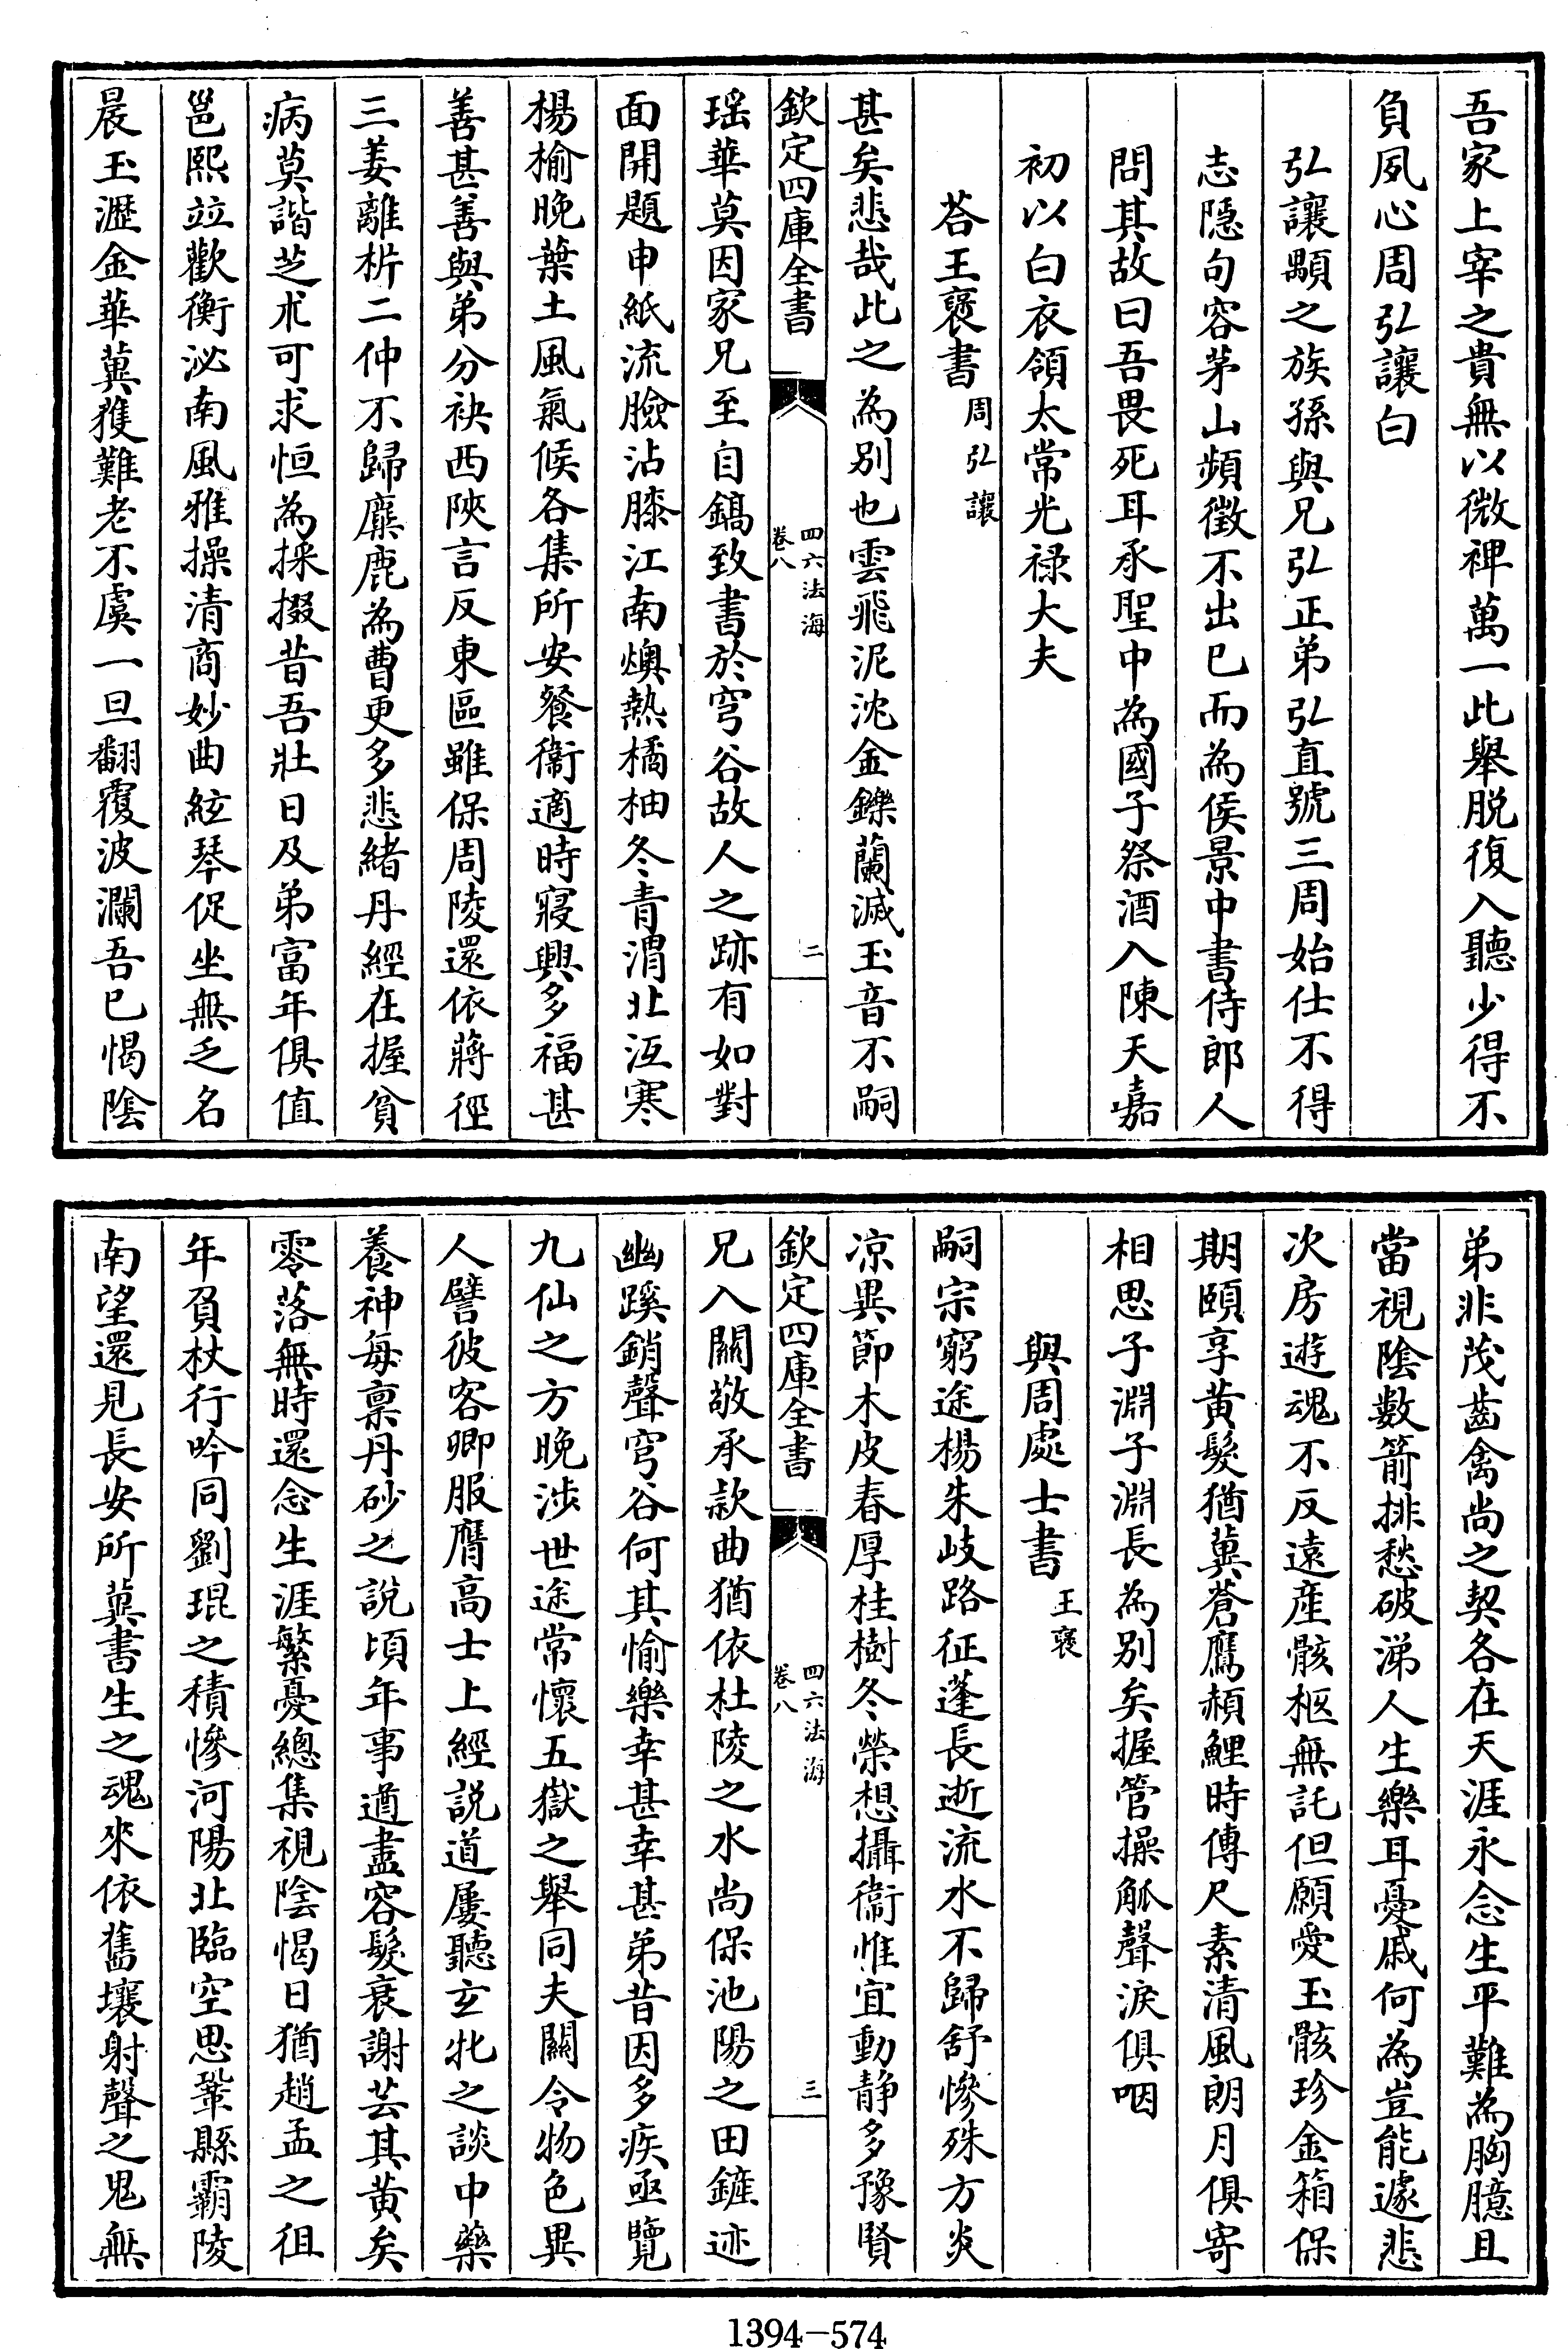 吾家上宰之貴無以微裨萬一此舉脱復入聽少得不
負夙心周弘讓白
弘讓顒之族孫與兄弘正弟弘直號三周始仕不得
志隱句容茅山頻徵不出已而為侯景中書侍郎人
問其故曰吾畏死耳承聖中為國子祭酒入陳天嘉
初以白衣領太常光禄大夫
荅王襃書周弘讓
甚矣悲哉此之為別也雲飛泥沈金鑠蘭滅玉音不嗣
欽定四庫全書
四六法海
卷八
二
瑶華莫因家兄至自鎬致書於穹谷故人之跡有如對
面開題申紙流臉沾膝江南燠熱橘柚冬青渭北沍寒
楊榆晚葉土風氣候各集所安餐衛適時寢興多福甚
善甚善與弟分袂西陝言反東區雖保周陵還依蔣徑
三姜離析二仲不歸麋鹿為曹更多悲緒丹經在握貧
病莫諧芝朮可求恒為採掇昔吾壯日及弟富年俱值
邕熙竝歡衡泌南風雅操清商妙曲絃琴促坐無乏名
晨玉瀝金華冀獲難老不虞一旦翻覆波瀾吾已愒陰
弟非茂齒禽尚之契各在天涯永念生平難為胸臆且
當視陰數箭排愁破涕人生樂耳憂戚何為豈能遽悲
次房遊魂不反遠産骸柩無託但願愛玉骸珍金箱保
期頤享黄髮猶冀蒼鷹頳鯉時傳尺素清風朗月俱寄
相思子淵子淵長為別矣握管操觚聲淚俱咽
與周處士書王襃
嗣宗窮途楊朱岐路征蓬長逝流水不歸舒慘殊方炎
凉異節木皮春厚桂樹冬榮想攝衛惟宜動静多豫賢
欽定四庫全書
四六法海
卷八
三
兄入關敬承款曲猶依杜陵之水尚保池陽之田鏟迹
幽蹊銷聲穹谷何其愉樂幸甚幸甚弟昔因多疾亟覽
九仙之方晚涉世途常懷五嶽之舉同夫關令物色異
人譬彼客卿服膺高士上經説道屢聽玄牝之談中藥
養神每稟丹砂之説頃年事遒盡容髮衰謝芸其黄矣
零落無時還念生涯繁憂總集視陰愒日猶趙孟之徂
年負杖行吟同劉琨之積慘河陽北臨空思鞏縣霸陵
南望還見長安所冀書生之魂來依舊壤射聲之鬼無
1394-574